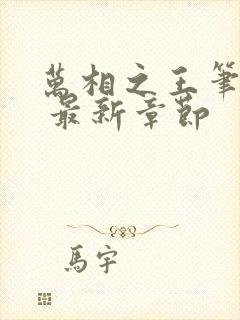 萬相之王筆
最新章節
馬宇